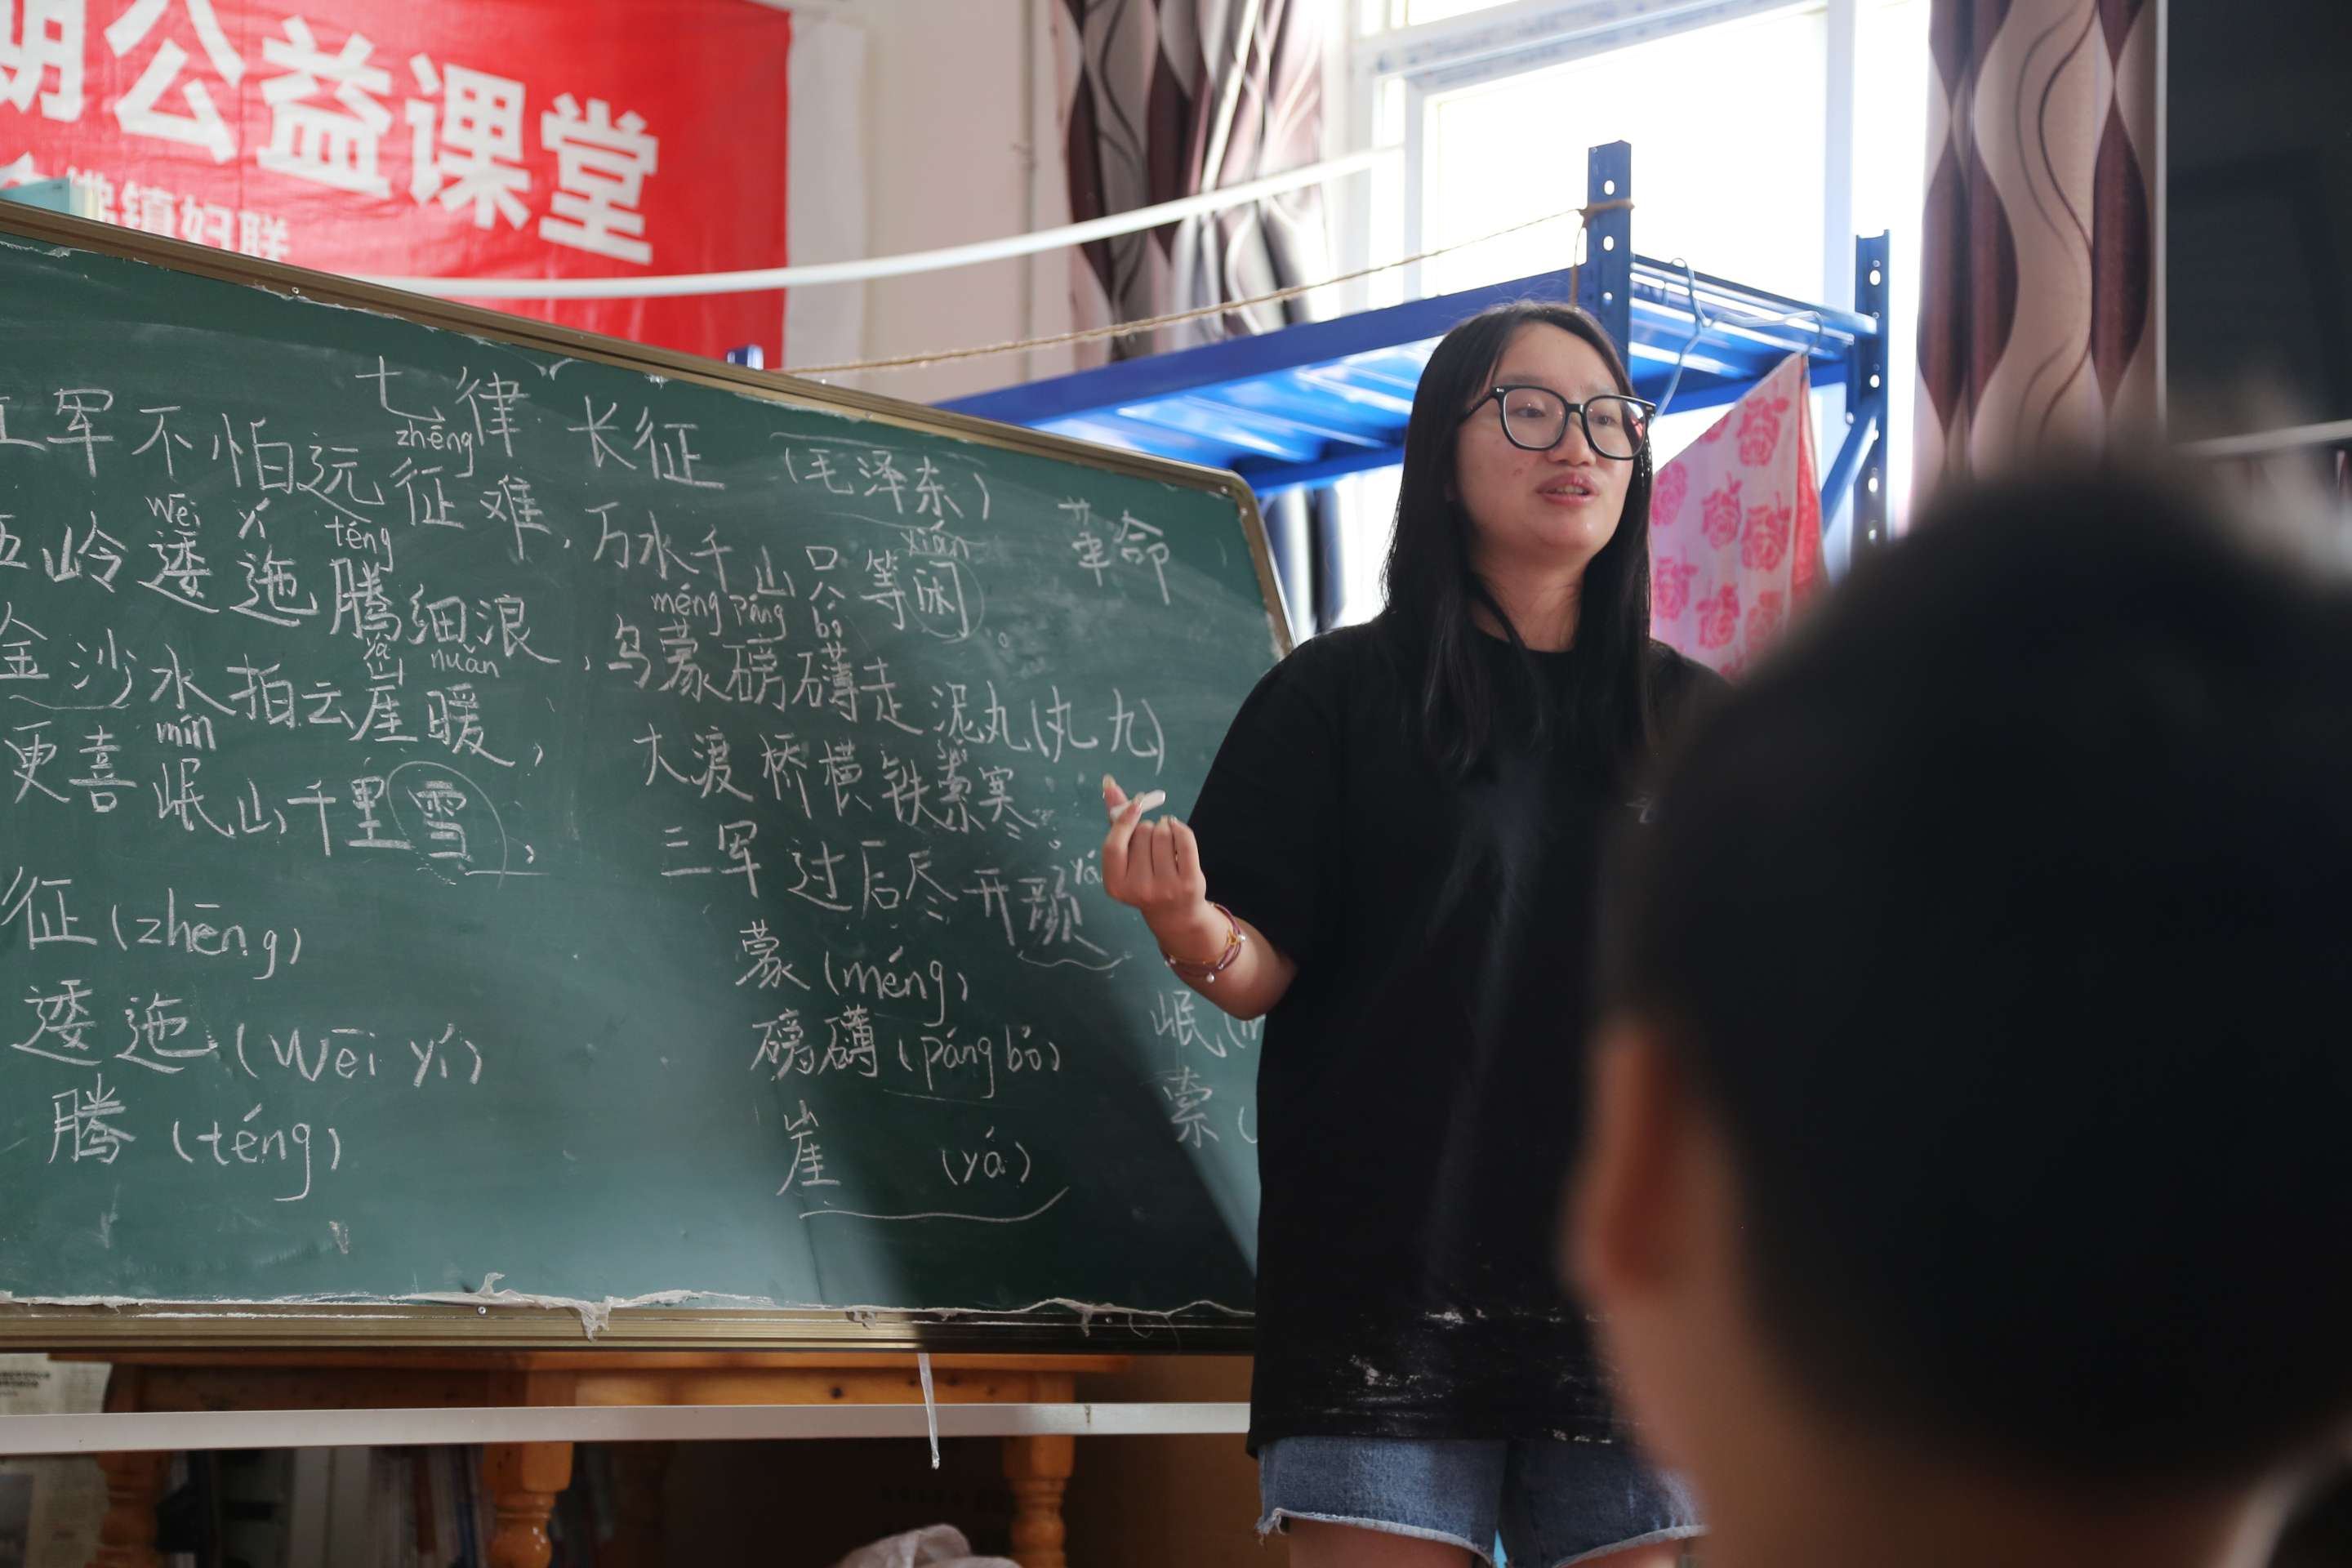 期公益课堂
镇妇联
七律 长征 (毛泽东)
革命
zhēng
红军不怕远征难,万水千山只等闲
xián
wēi yí téng
五岭逶迤腾细浪,乌蒙磅礴走泥丸(丸 九)
méng páng bó
yá nuǎn
金沙水拍云崖暖,大渡桥横铁索寒
mín
更喜岷山千里雪,三军过后尽开颜
征(zhēng)
逶迤(wēi yí)
腾(téng)
蒙(méng)
磅礴(páng bó)
崖 (yá)
岷(
索(